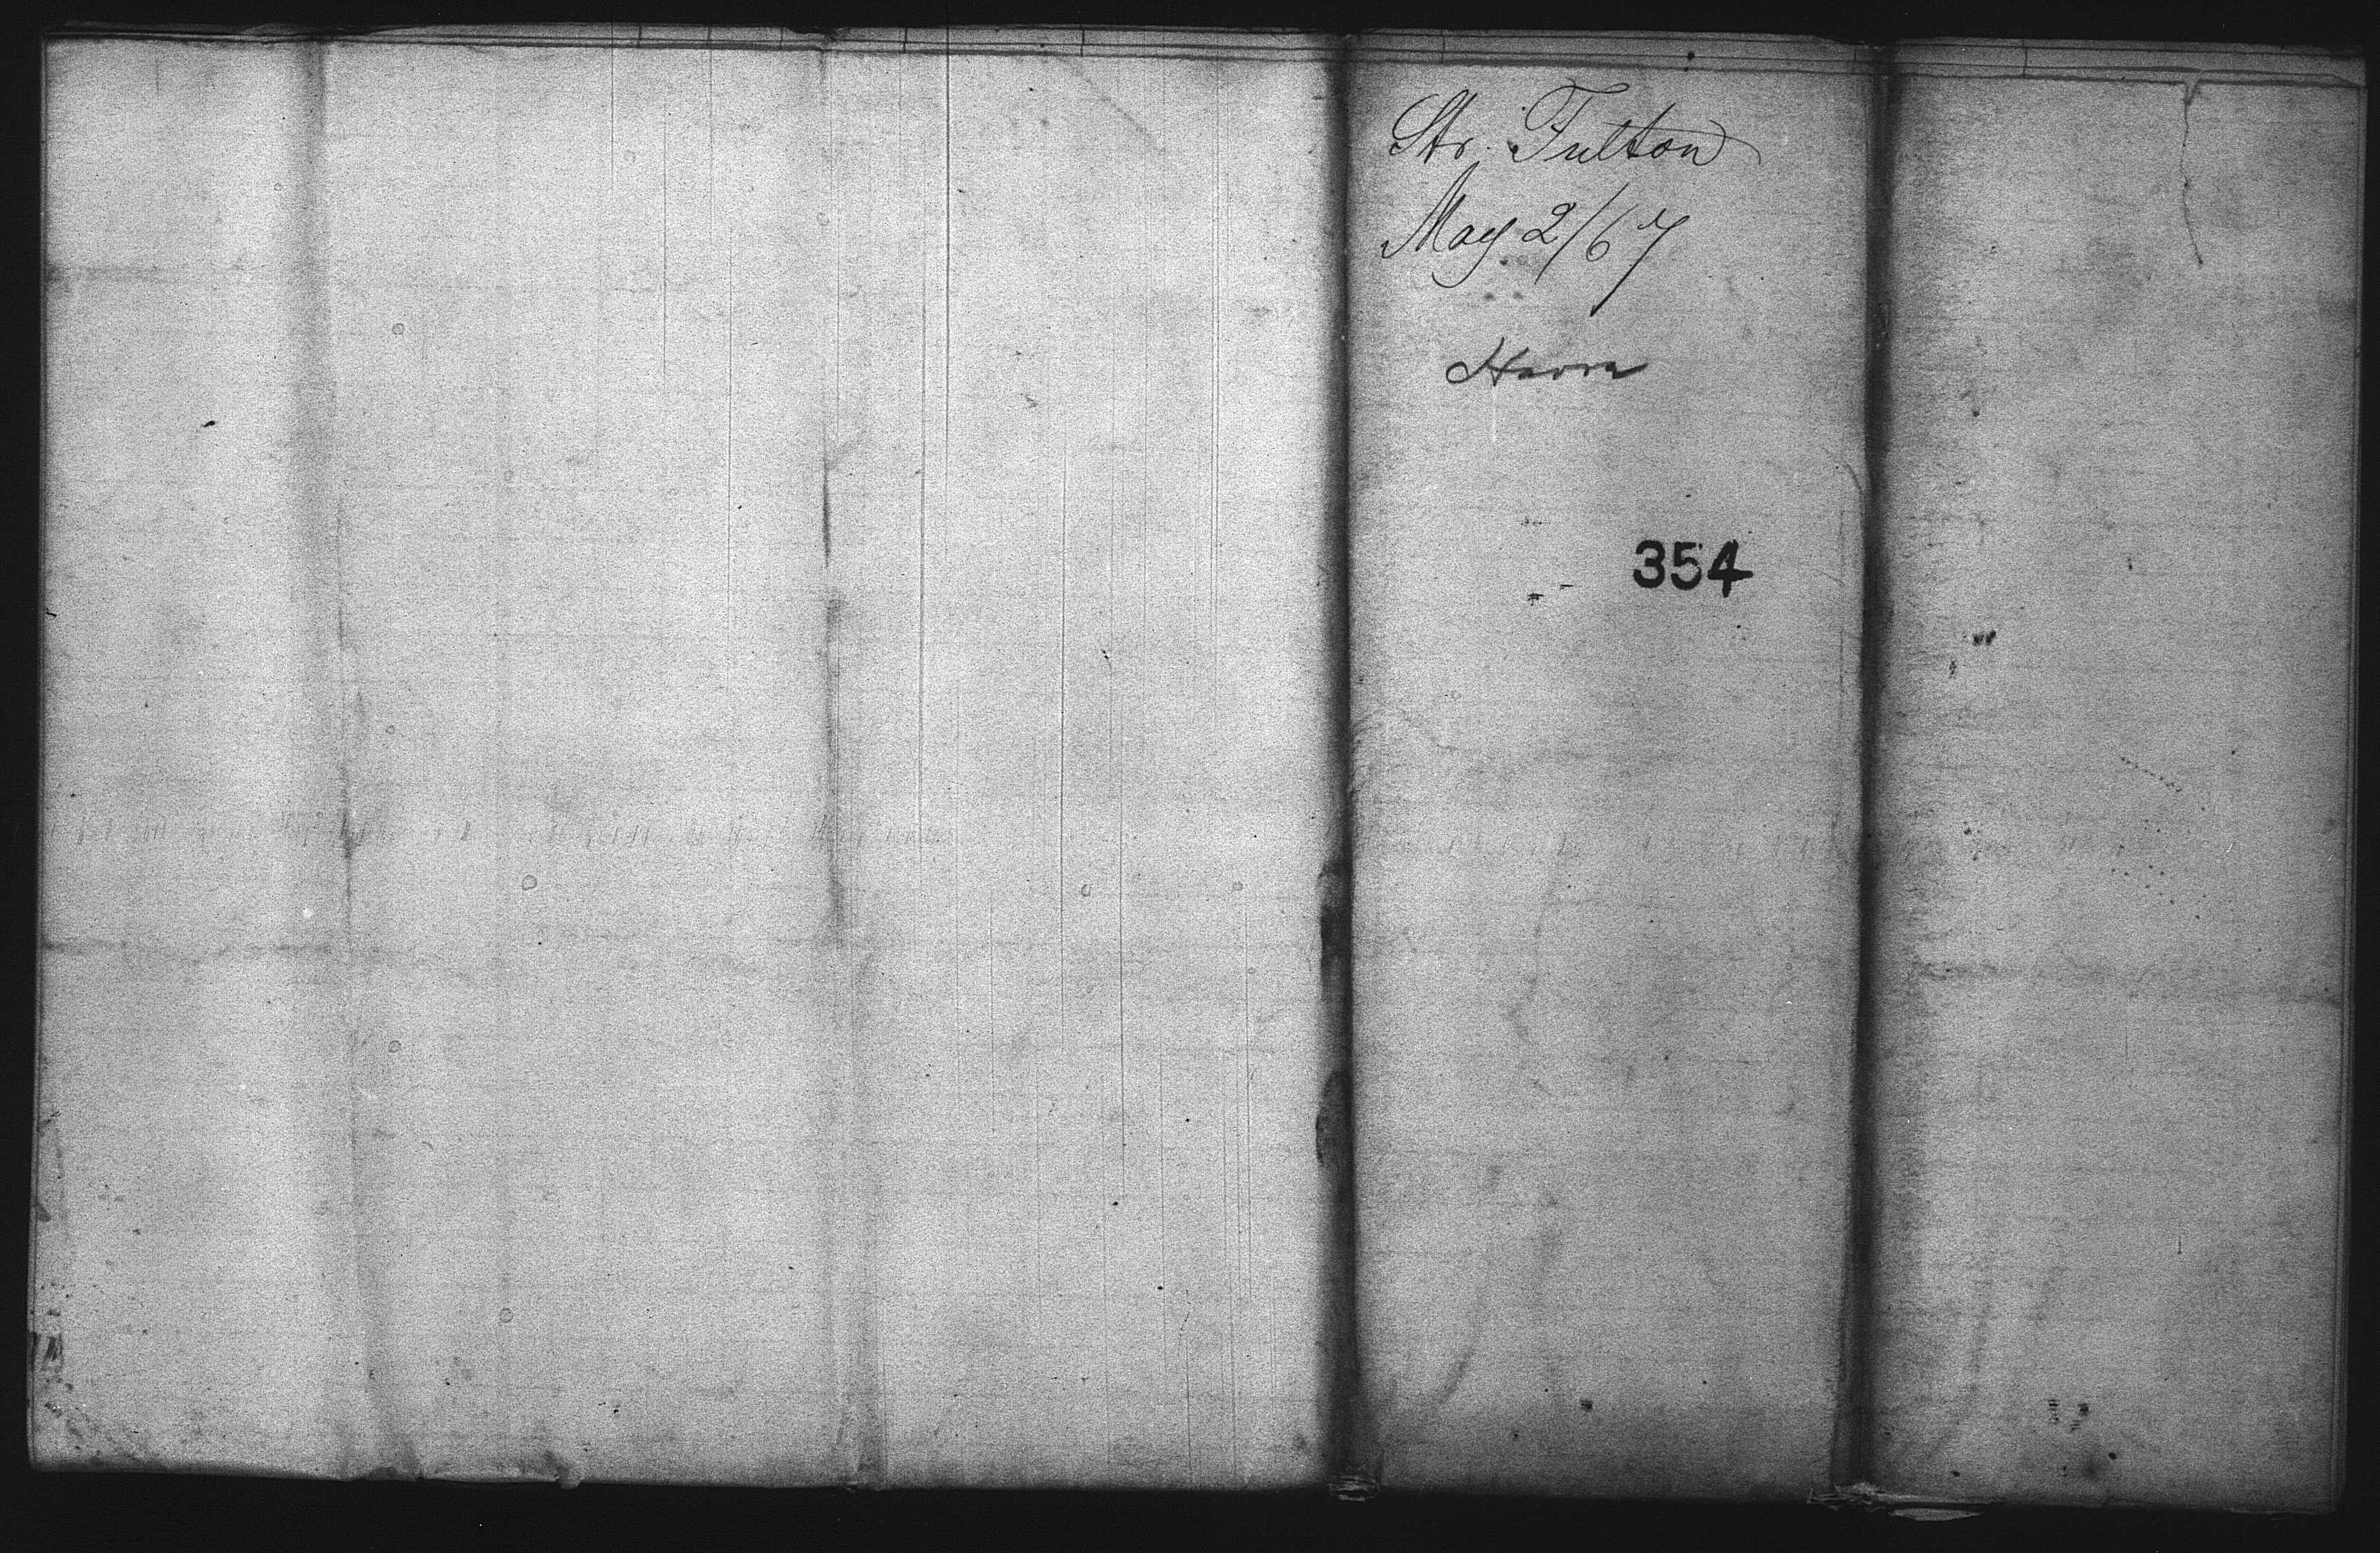 Str. Fulton
May 2/67
Havre
354